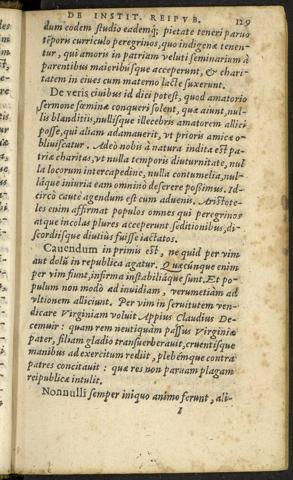 DE INSTIT. REIPVB. 129
dum eodem studio eademq́; pietate teneri paruo
tẽporis curriculo peregrinos, quo indigenæ tenen-
tur, qui amoris in patriam veluti seminarium à
parentibus maioribúsque acceperunt, & chari-
tatem in ciues cum materno lacte suxerunt.
De veris ciuibus id dici potest, quod amatorio
sermone fœminæ conqueri solent, quæ aiunt, nul-
lis blanditiis, nullísque illecebris amatorem allici
posse, qui aliam adamauerit, vt prioris amicæ o-
bliuiscatur. Adeò nobis à natura indita est pa-
triæ charitas, vt nulla temporis diuturnitate, nul
la locorum intercapedine, nulla contumelia, nul-
láque iniuria eam omnino deserere poßimus. Id-
circò cautè agendum est cum aduenis. Aristote-
les enim affirmat populos omnes qui peregrinos
atque incolas plures acceperunt seditionibus, di-
scordiísque diutius fuisse iactatos.
Cauendum in primis est, ne quid per vim
aut dolũ in republica agatur. Quæcunque enim
per vim fiunt, infirma instabiliáque sunt, Et po-
pulum non modo ad inuidiam, verumetiam ad
vltionem alliciunt. Per vim in seruitutem ven-
dicare Virginiam voluit Appius Claudius De-
cemuir: quam rem neutiquam passus Virginiæ
pater, filiam gladio transuerberauit, cruentísque
manibus ad exercitum rediit, plebémque contra
patres concitauit: quæ res non paruam plagam
reipublicæ intulit.
Nonnulli semper iniquo animo ferunt, ali-
I